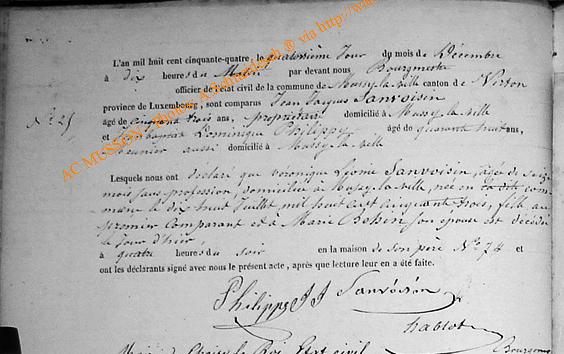 L'an mil huit cent cinquante-quatre, le quatorzième Jour du mois de Décembre
à dix heures du Matin par devant nous Bourgmestre
officier de l'état civil de la commune de Mussy-la-ville canton de Virton
province de Luxembourg, sont comparus Jean Jacques Sanvoisin
N° 25
âgé de cinquante trois ans, propriétaire domicilié à Mussy-la-ville
et Dominique Philippe âgé de quarante huit ans,
meunier aussi domicilié à Mussy-la-ville
Lesquels nous ont déclaré que veronique Leonie Sanvoisin, âgée de seize
mois sans profession, domiciliée à Mussy-la-ville, née en la dite com-
mune le dix huit Juillet mil huit cent cinquante trois, fille au
premier Comparant et à Marie Bohin son épouse est décédée
le jour d'hier,
à quatre heures du soir en la maison de son père N° 74 et
ont les déclarants signé avec nous le présent acte, après que lecture leur en a été faite.
Philippe JJ Sanvoisin
Habtot
Bourgme
AC MUSSON, Photos A. Schandeloh ® via http://ww